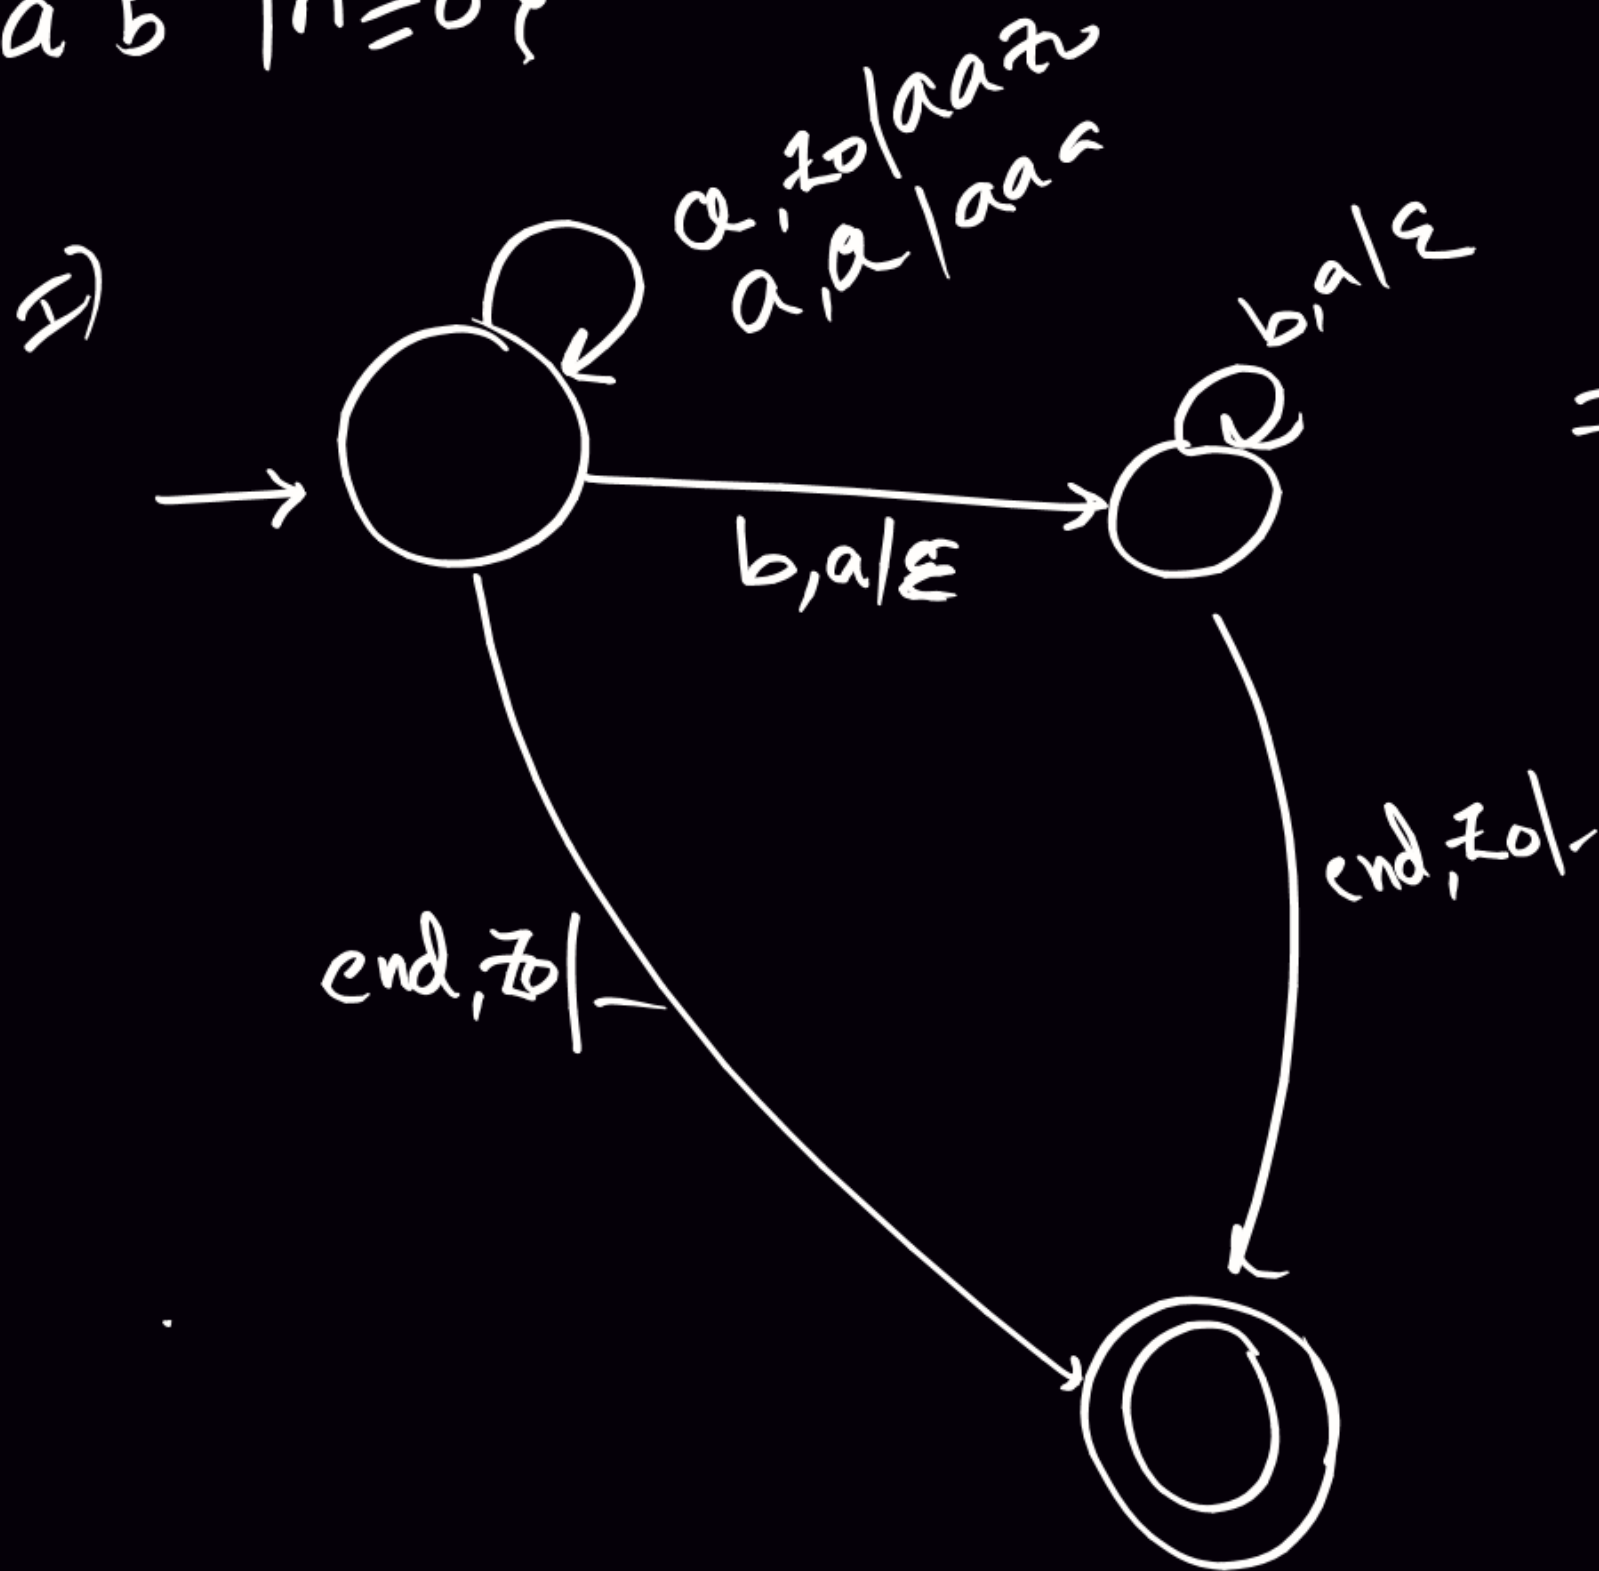 a b |n≥0}
I)
a,z0|aaz0
a,a|aaa
b,a|ε
b,a|ε
end,z0|-
end,z0|-